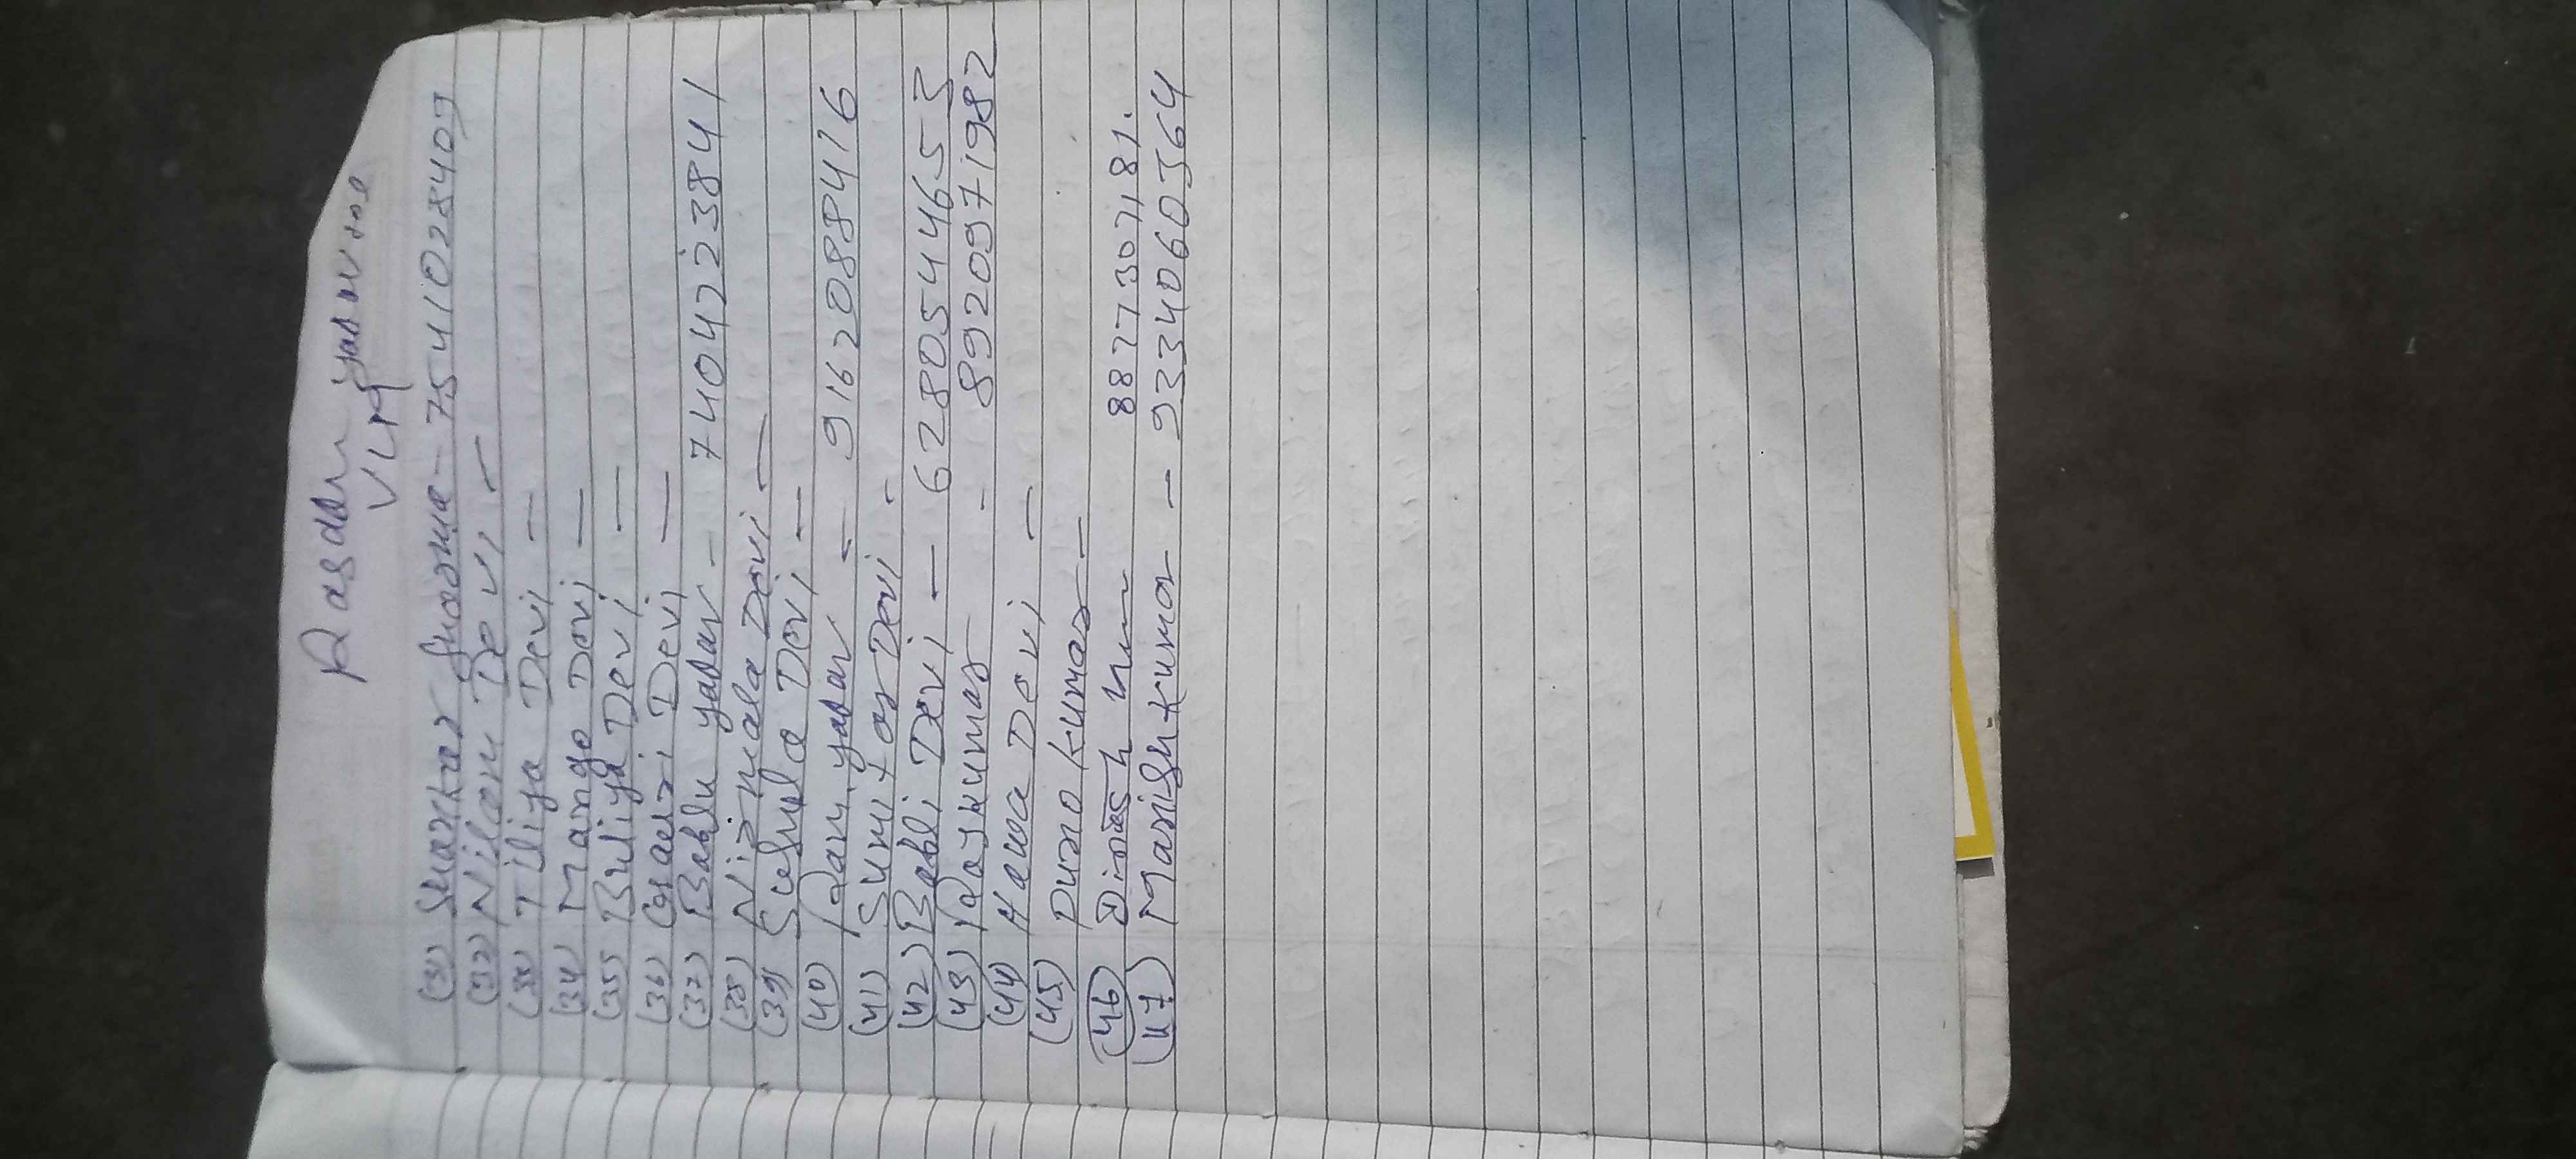 VLM
(31) Shankar Sharma - 7541028409
(32) Nilam Devi -
(33) Tiliya Devi -
(34) Mango Devi -
(35) Bruliya Devi -
(36) Gaeri Devi -
(37) Bablu yadav - 7404223841
(38) Nirmala Devi -
(39) Sushula Devi -
(40) Ram yadav - 9162088416
(41) Sumitra Devi -
(42) Babli Devi - 6280544653
(43) Rajkumar - 8920971982
(44) Hawa Devi -
(45) Kumar -
(46) Dinesh 8877307181.
(47) Manish Kumar - 9334060364